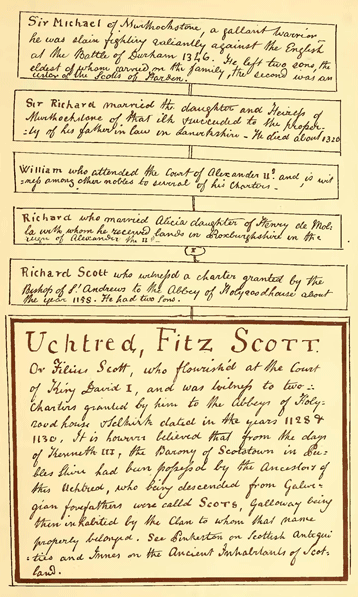 Sir Michael of Murthockstone, a gallant Warrior,
he was slain fighting valiantly against the English
at the Battle of Durham 1346. He left two sons, the
eldest of whom carried on the family, the second was an
cestor of the Scotts of Harden.
Sir Richard married the daughter and Heiress of
Murthockstone of that ilk & succeeded to the proper-
-ty of his father in law in Lanerkshire - He died about 1320
William who attended the Court of Alexander IId. and is wit
ness among other nobles to several of his Charters -
Richard who married Alicia daughter of Henry de Moli
la with whom he received lands in Roxburghshire in the
reign of Alexander the IId -
Richard Scott who witness'd a charter granted by the
Bishop of St. Andrews to the Abbey of Holyroodhouse about
the year 1158. He had two sons.
Uchtred, Fitz Scott
Or Filius Scott, who flourish'd at the Court
of King David I, and was witness to two =
Charters granted by him to the Abbeys of Holy-
roodhouse & Selkirk dated in the years 1128 &
1130. It is however believed that from the days
of Kenneth III, the Barony of Scotstown in Pee-
bles Shire had been possess'd by the Ancestors of
this Uchtred, who being descended from Galwe-
gian forefathers were called Scots, Galloway being
then inhabited by the Clan to whom that name
properly belonged. See Pinkerton on Scottish Antiqui
-ties and Innes on the Ancient Inhabitants of Scot-
land.